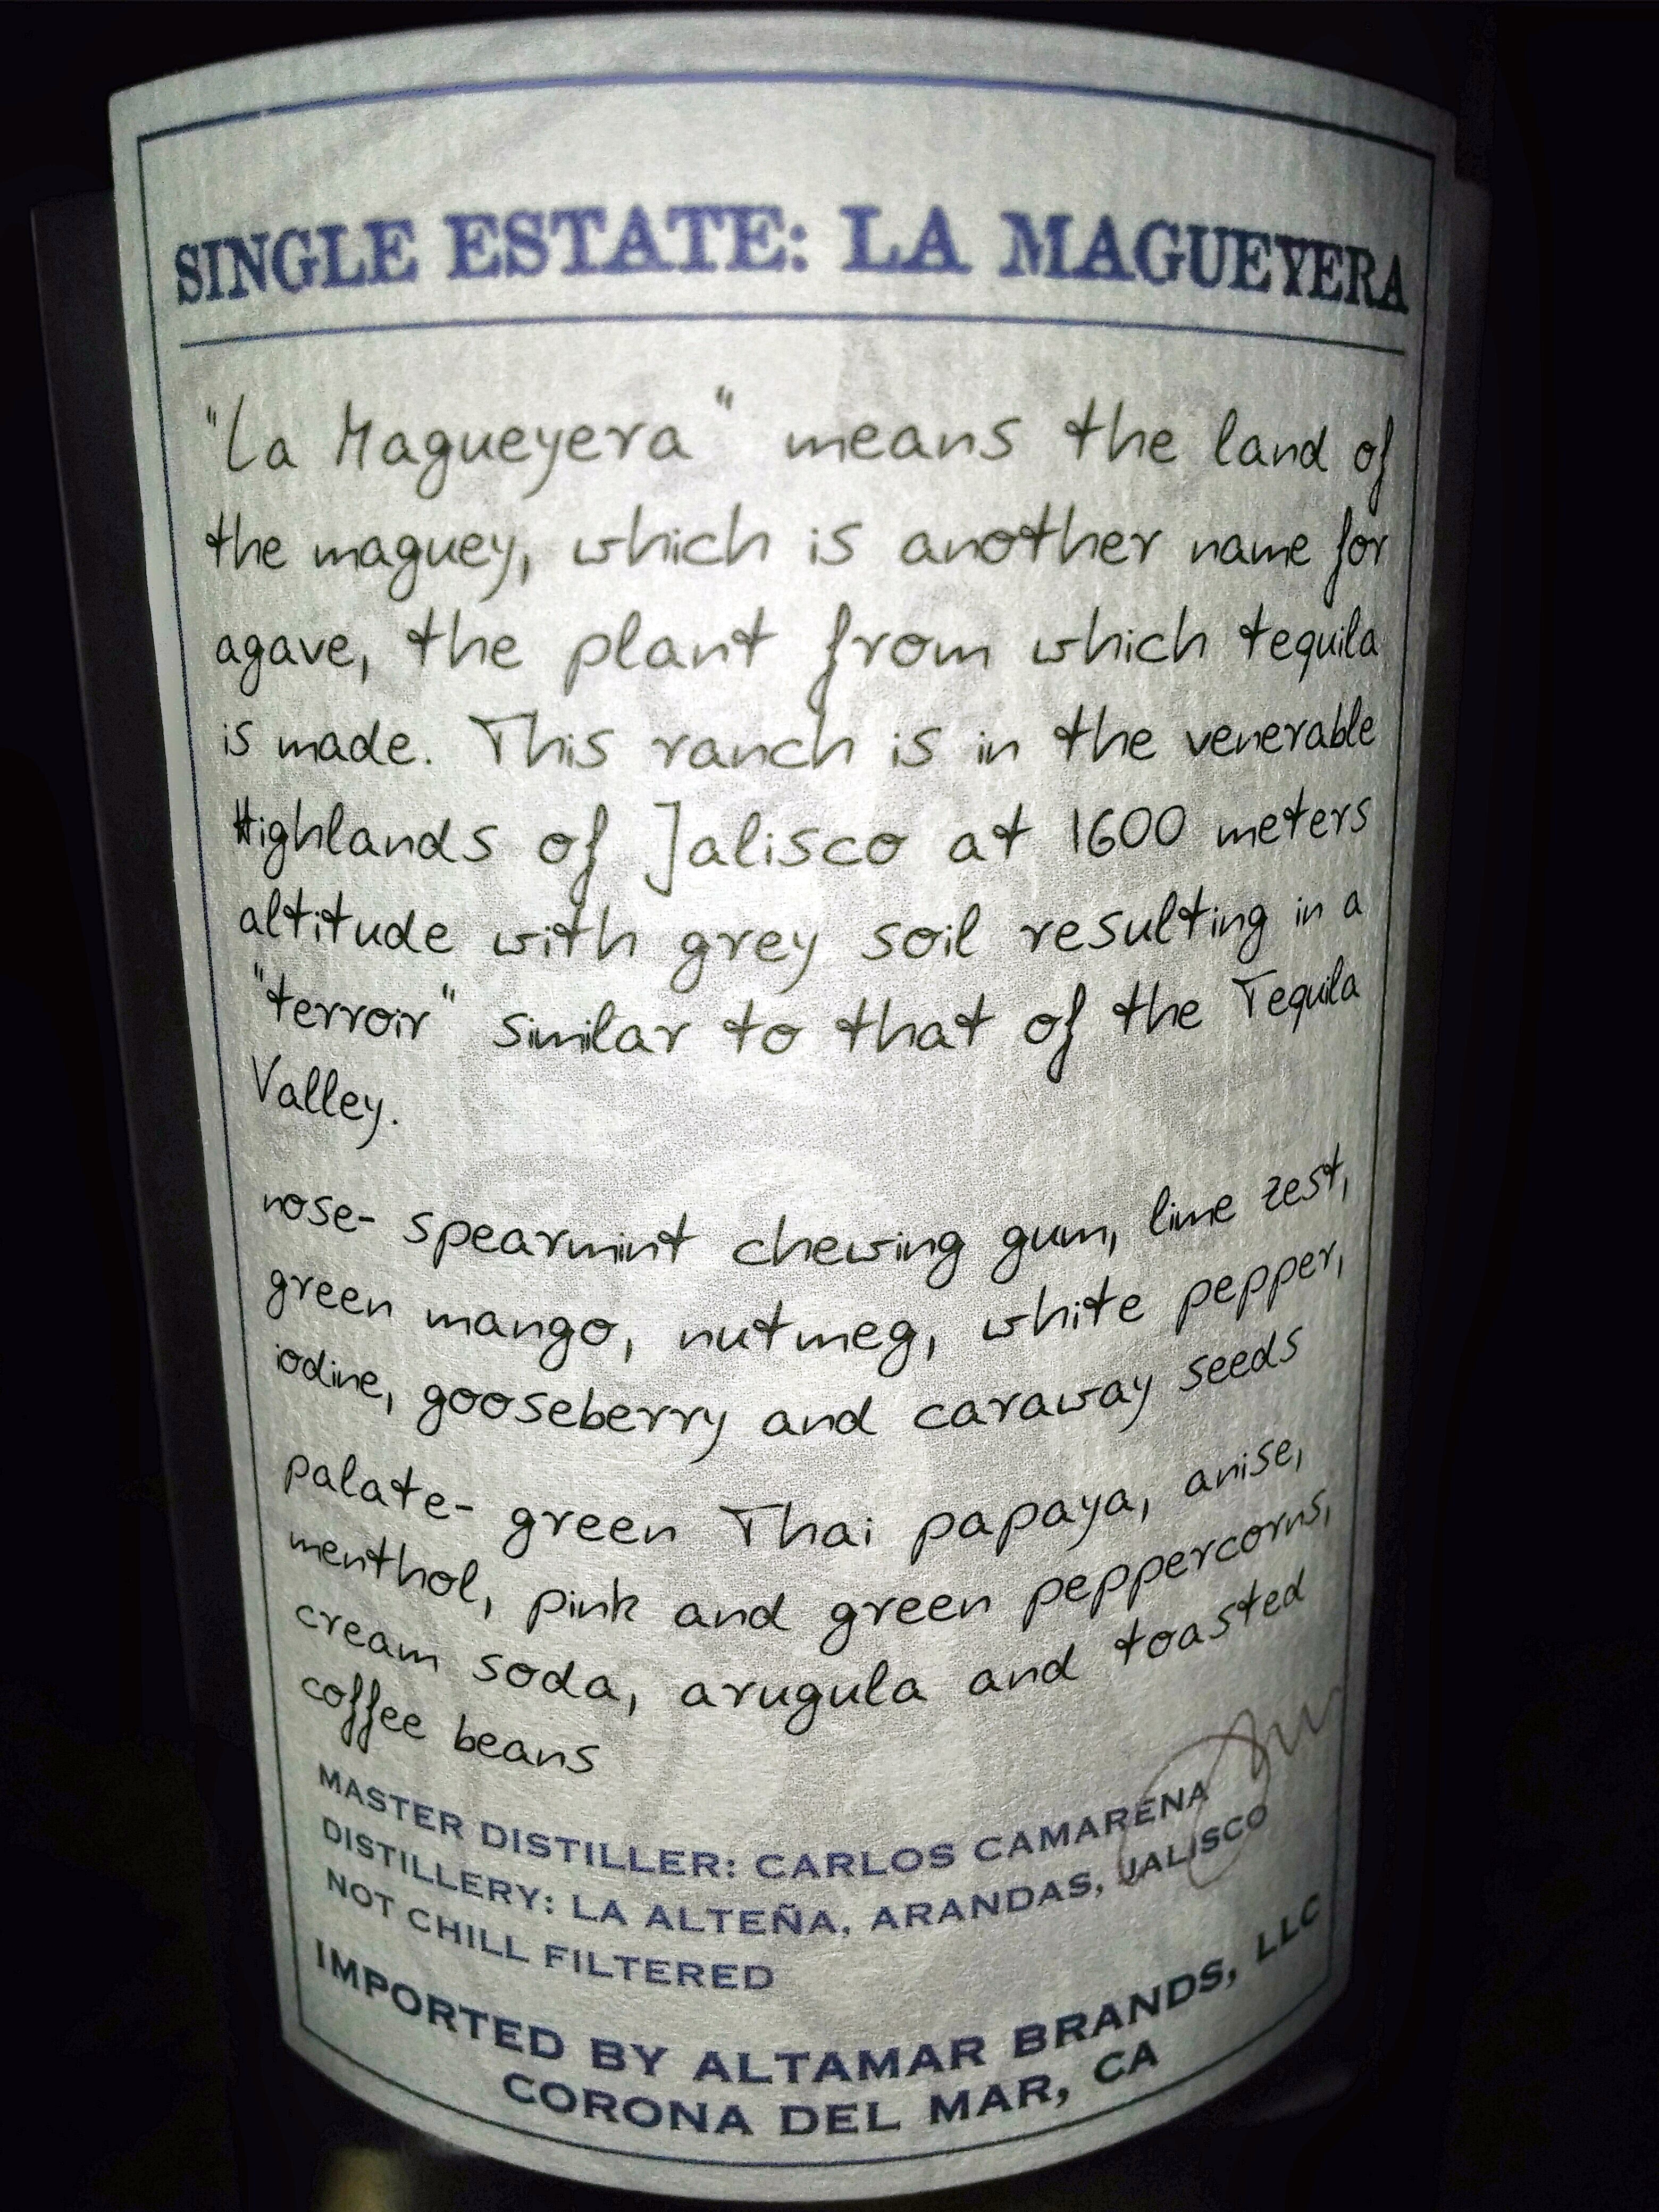 SINGLE ESTATE: LA MAGUEYERA
"La Magueyera" means the land of
the maguey, which is another name for
agave, the plant from which tequila
is made. This ranch is in the venerable
Highlands of Jalisco at 1600 meters
altitude with grey soil resulting in a
"terroir" similar to that of the Tequila
Valley.
nose- spearmint chewing gum, lime zest,
green mango, nutmeg, white pepper,
iodine, gooseberry and caraway seeds
palate- green Thai papaya, anise,
menthol, pink and green peppercorns,
cream soda, arugula and toasted
coffee beans
MASTER DISTILLER: CARLOS CAMARENA
DISTILLERY: LA ALTEÑA, ARANDAS, JALISCO
NOT CHILL FILTERED
IMPORTED BY ALTAMAR BRANDS, LLC
CORONA DEL MAR, CA